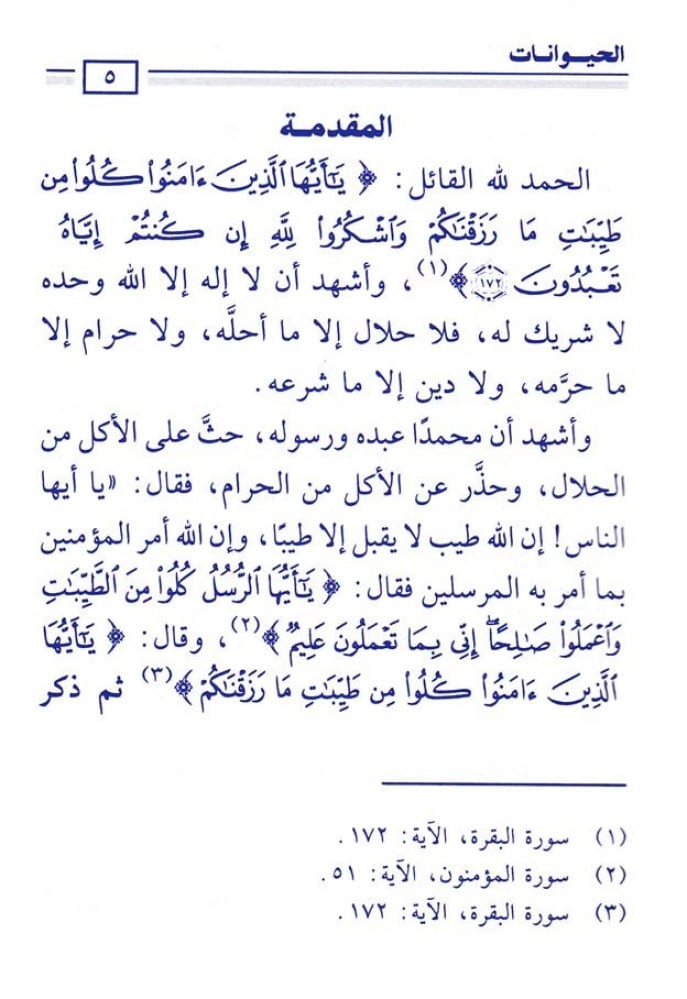 الحيوانات
٥
المقدمة
الحمد لله القائل: ﴿ يَٰٓأَيُّهَا ٱلَّذِينَ ءَامَنُوا۟ كُلُوا۟ مِن
طَيِّبَٰتِ مَا رَزَقْنَٰكُمْ وَٱشْكُرُوا۟ لِلَّهِ إِن كُنتُمْ إِيَّاهُ
تَعْبُدُونَ ١٧٢ ﴾(١)، وأشهد أن لا إله إلا الله وحده
لا شريك له، فلا حلال إلا ما أحلَّه، ولا حرام إلا
ما حرَّمه، ولا دين إلا ما شرعه.
وأشهد أن محمدًا عبده ورسوله، حثَّ على الأكل من
الحلال، وحذَّر عن الأكل من الحرام، فقال: «يا أيها
الناس! إن الله طيب لا يقبل إلا طيبًا، وإن الله أمر المؤمنين
بما أمر به المرسلين فقال: ﴿ يَٰٓأَيُّهَا ٱلرُّسُلُ كُلُوا۟ مِنَ ٱلطَّيِّبَٰتِ
وَٱعْمَلُوا۟ صَٰلِحًا ۖ إِنِّى بِمَا تَعْمَلُونَ عَلِيمٌ ﴾(٢)، وقال: ﴿ يَٰٓأَيُّهَا
ٱلَّذِينَ ءَامَنُوا۟ كُلُوا۟ مِن طَيِّبَٰتِ مَا رَزَقْنَٰكُمْ ﴾(٣) ثم ذكر
(١) سورة البقرة، الآية: ١٧٢.
(٢) سورة المؤمنون، الآية: ٥١.
(٣) سورة البقرة، الآية: ١٧٢.